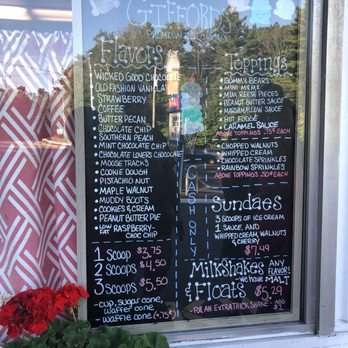 GIFFORD'S
Flavors
WICKED GOOD CHOCOLATE
OLD FASHION VANILLA
STRAWBERRY
COFFEE
BUTTER PECAN
CHOCOLATE CHIP
SOUTHERN PEACH
MINT CHOCOLATE CHIP
CHOCOLATE LOVERS CHOCOLATE
MOOSE TRACKS
COOKIE DOUGH
PISTACHIO NUT
MAPLE WALNUT
MUDDY BOOTS
COOKIES & CREAM
PEANUT BUTTER PIE
LOW FAT RASPBERRY-
CHOC CHIP
1 Scoop $3.75
2 Scoops $4.50
3 Scoops $5.50
- cup, sugar cone,
waffer cone
- waffle cone (+.75¢)
CASH ONLY
Toppings
GUMMY BEARS
MINI M&MS
MINI REESE PIECES
PEANUT BUTTER SAUCE
MARSHMALLOW SAUCE
HOT FUDGE
CARAMEL SAUCE
ABOVE TOPPINGS .75¢ EACH
CHOPPED WALNUTS
WHIPPED CREAM
CHOCOLATE SPRINKLES
RAINBOW SPRINKLES
ABOVE TOPPINGS .50¢ EACH
Sundaes
3 SCOOPS OF ICE CREAM
1 SAUCE, AND
WHIPPED CREAM, WALNUTS
& CHERRY
$7.49
Milkshakes & Floats
ANY FLAVOR!
we have MALT
$5.29
- FOR AN EXTRA THICK SHAKE ADD $2